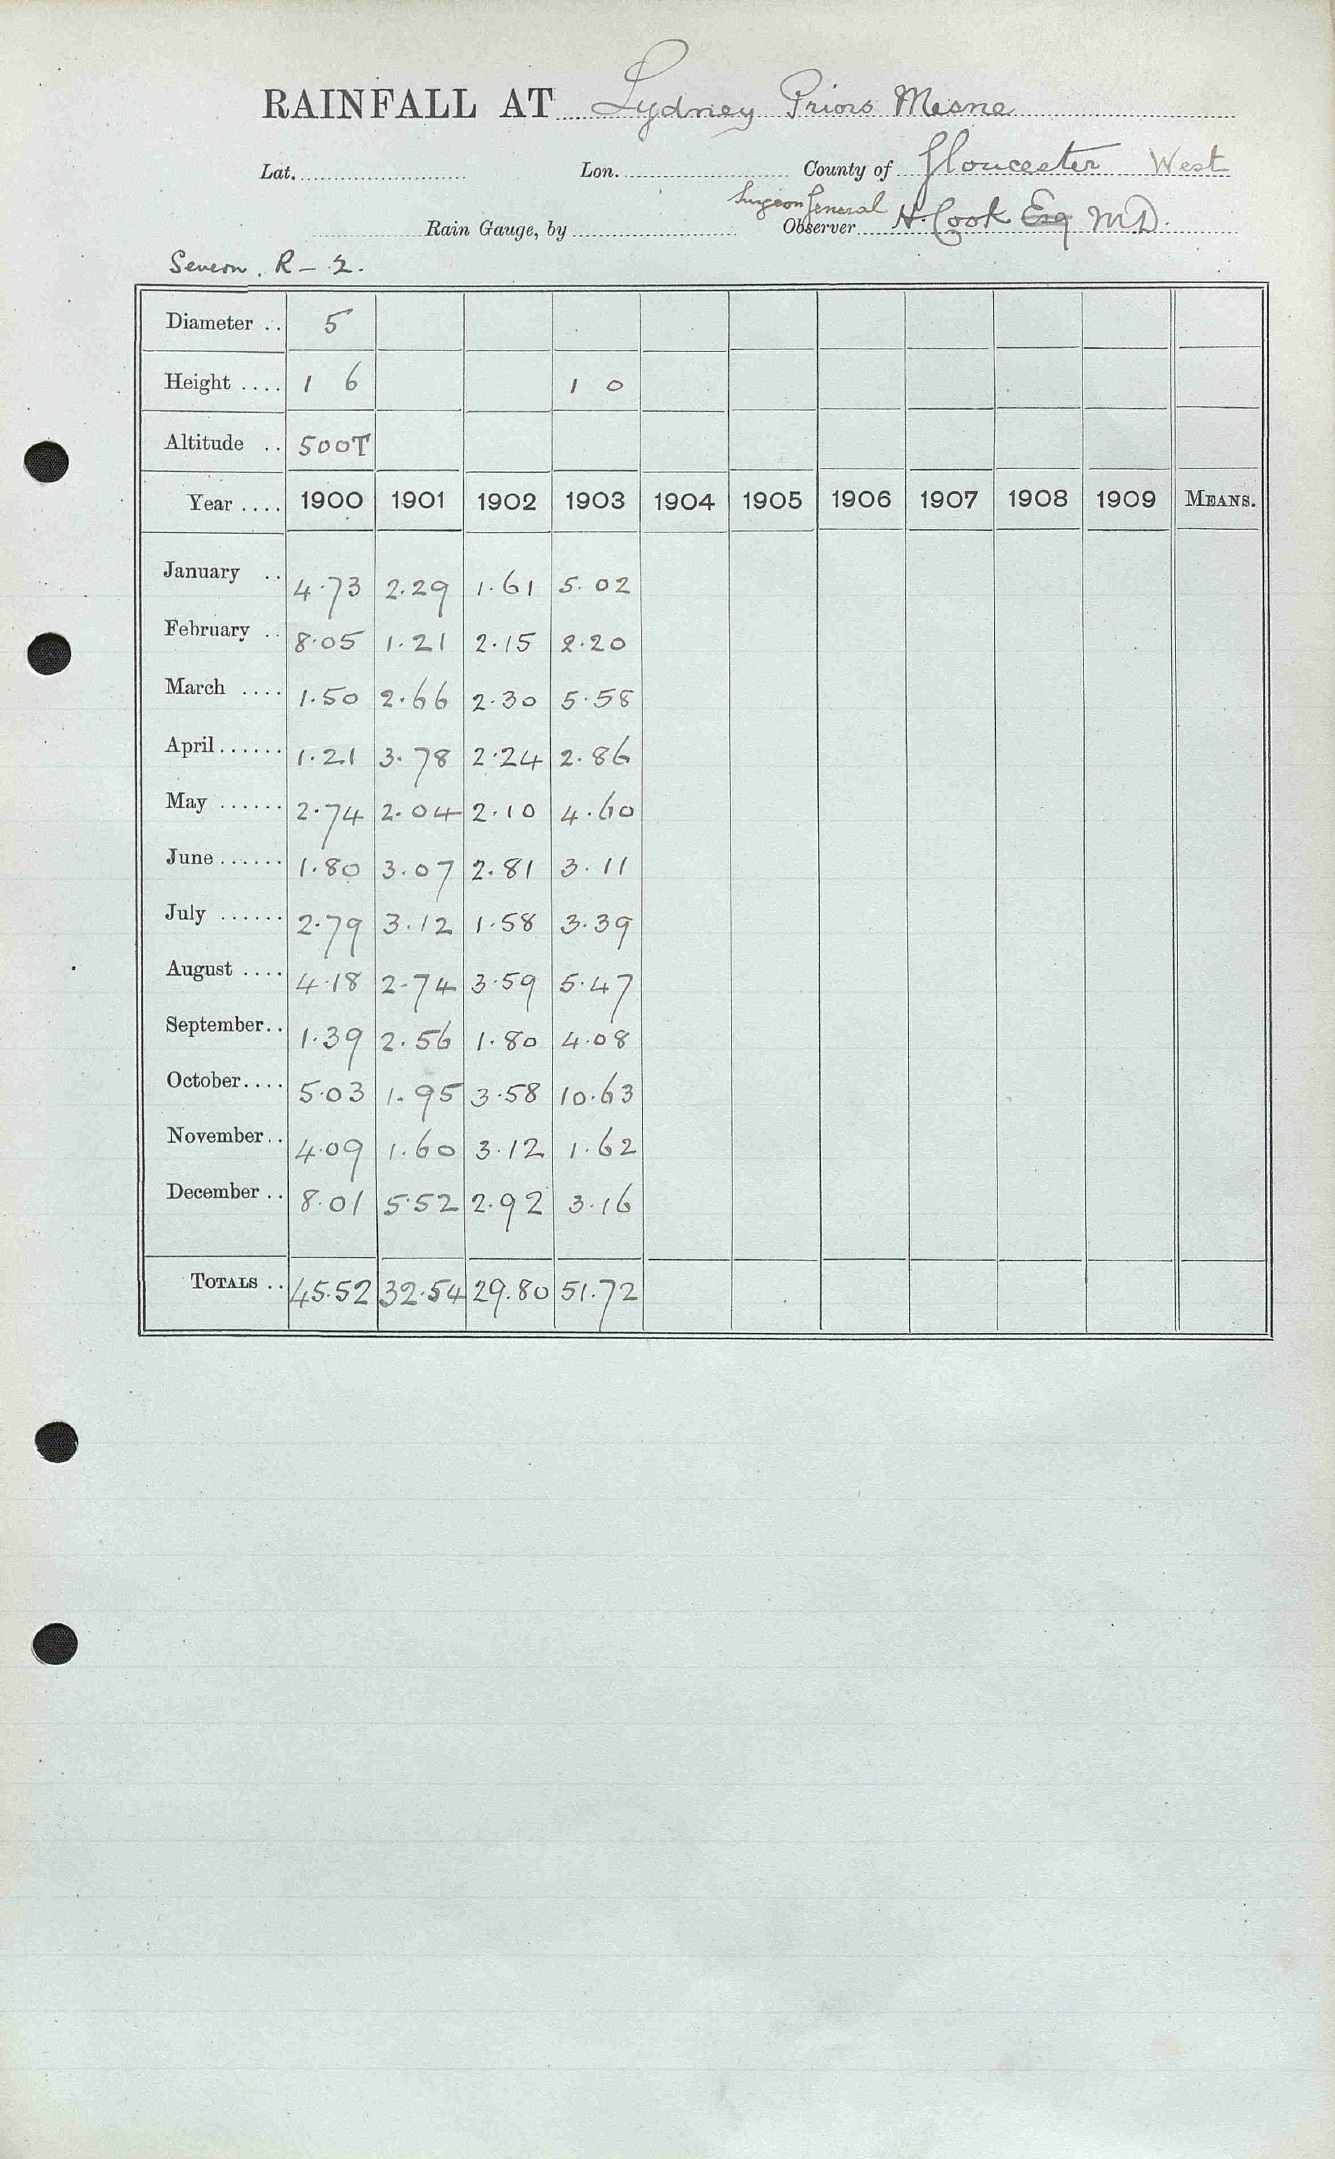 RAINFALL AT Lydney Priors Mesne
Lat. Lon. County of Gloucester West
Surgeon General
Rain Gauge, by Observer H. Cook Esq MD.
Severn. R - 2.
Diameter .. 5
Height .... 1 6 1 0
Altitude .. 500T
Year .... 1900 1901 1902 1903 1904 1905 1906 1907 1908 1909 MEANS.
January .. 4.73 2.29 1.61 5.02
February .. 8.05 1.21 2.15 2.20
March .... 1.50 2.66 2.30 5.58
April ...... 1.21 3.78 2.24 2.86
May ...... 2.74 2.04 2.10 4.60
June ...... 1.80 3.07 2.81 3.11
July ...... 2.79 3.12 1.58 3.39
August .... 4.18 2.74 3.59 5.47
September.. 1.39 2.56 1.80 4.08
October.... 5.03 1.95 3.58 10.63
November.. 4.09 1.60 3.12 1.62
December .. 8.01 5.52 2.92 3.16
TOTALS .. 45.52 32.54 29.80 51.72